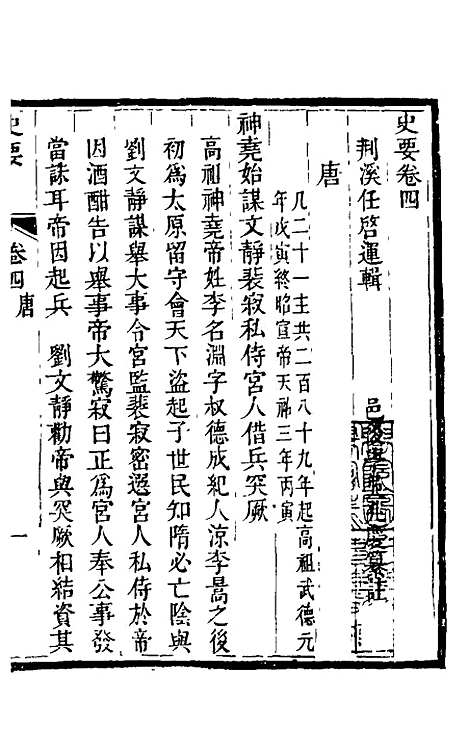 史要卷四
荆溪任啓運輯
邑後學吳兆慶篹註
唐
凡二十一主共二百八十九年起高祖武德元
年戊寅終昭宣帝天祐三年丙寅
神堯始謀文靜裴寂私侍宮人借兵突厥
高祖神堯帝姓李名淵字叔德成紀人涼李暠之後
初為太原留守會天下盜起子世民知隋必亡陰與
劉文靜謀舉大事令宮監裴寂密選宮人私侍於帝
因酒酣告以舉事帝大驚寂曰正為宮人奉公事發
當誅耳帝因起兵　劉文靜勸帝與突厥相結資其
史要
卷四
唐
一